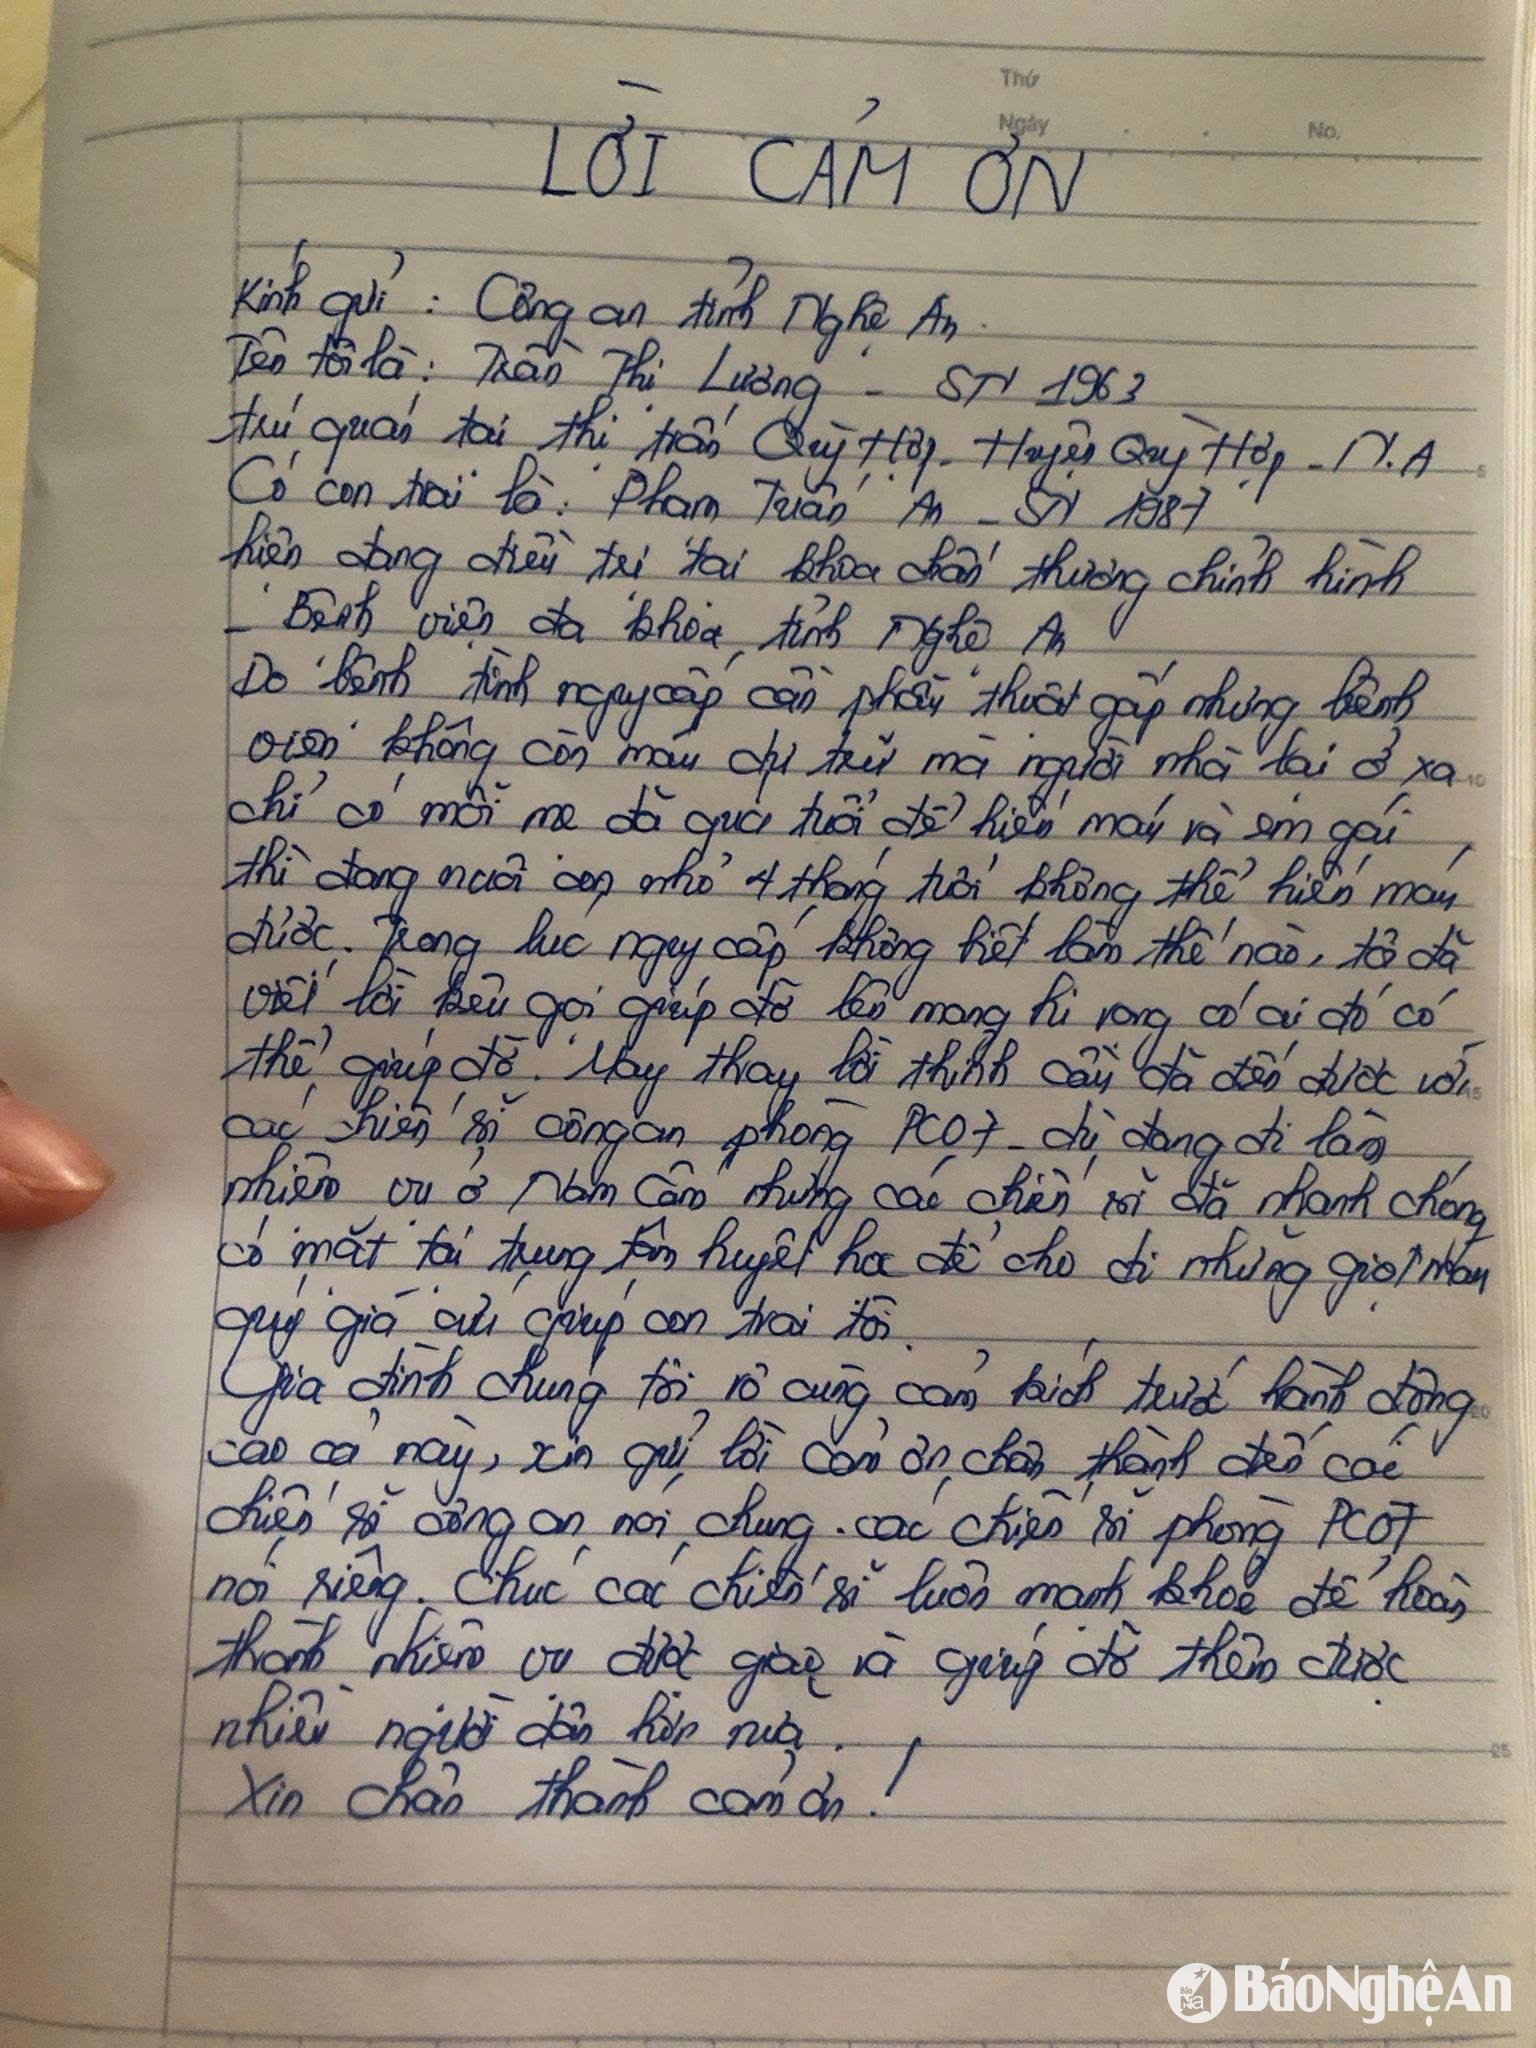 Thứ
Ngày
No.
LỜI CẢM ƠN
Kính gửi : Công an tỉnh Nghệ An.
Tên tôi là : Trần Thị Lương - SN 1963
trú quán tại thị trấn Quỳ Hợp - Huyện Quỳ Hợp - N.A
Có con trai là : Phạm Tuấn An - SN 1987
hiện đang điều trị tại khoa chấn thương chỉnh hình
- Bệnh viện đa khoa tỉnh Nghệ An
Do bệnh tình nguy cấp cần phẫu thuật gấp nhưng bệnh
viện không còn máu dự trữ mà người nhà lại ở xa
chỉ có mỗi mẹ đã quá tuổi để hiến máu và em gái
thì đang nuôi con nhỏ 4 tháng tuổi không thể hiến máu
được. Trong lúc nguy cấp không biết làm thế nào, tôi đã
viết lời kêu gọi giúp đỡ lên mạng hi vọng có ai đó có
thể giúp đỡ. May thay lời thỉnh cầu đã đến được với
các chiến sĩ công an phòng PC07 - dù đang đi làm
nhiệm vụ ở Nậm Cắn nhưng các chiến sĩ đã nhanh chóng
có mặt tại trung tâm huyết học để cho đi những giọt máu
quý giá cứu giúp con trai tôi.
Gia đình chúng tôi vô cùng cảm kích trước hành động
cao cả này, xin gửi lời cảm ơn chân thành đến các
chiến sĩ công an nói chung. các chiến sĩ phòng PC07
nói riêng. Chúc các chiến sĩ luôn mạnh khoẻ để hoàn
thành nhiệm vụ được giao và giúp đỡ thêm được
nhiều người dân hơn nữa.
Xin chân thành cảm ơn !
5
10
15
20
25
BáoNghệAn